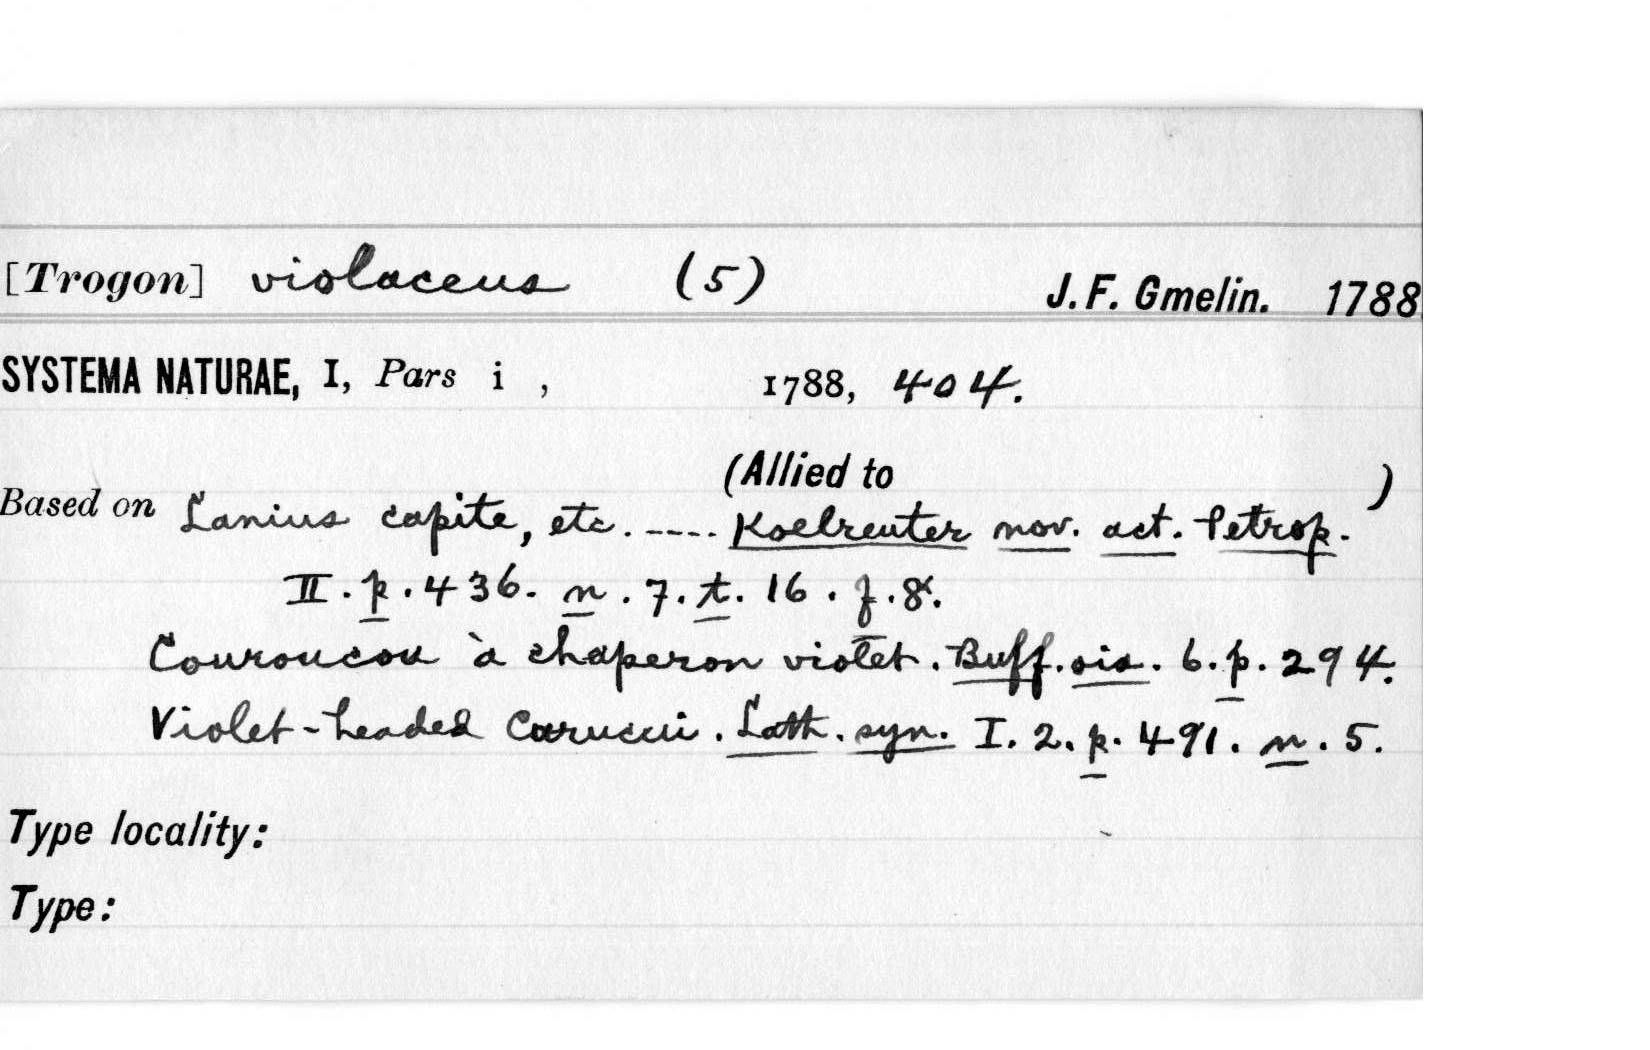 [Trogon] violaceus (5) J. F. Gmelin. 1788
SYSTEMA NATURAE, I, Pars i , 1788, 404.
(Allied to )
Based on Lanius capite, etc. ---- Koelreuter nov. act. Petrop.
II. p. 436. n. 7. t. 16. f. 8.
Couroucou à chaperon violet. Buff. ois. 6. p. 294.
Violet-headed Curucui. Lath. syn. I. 2. p. 491. n. 5.
Type locality:
Type: